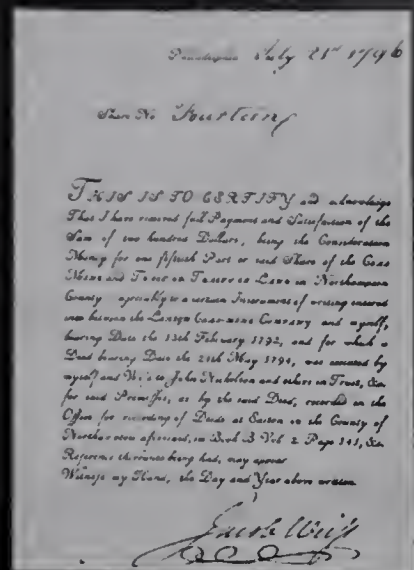 Philadelphia July 21st 1796
Share No Fourteen
THIS IS TO CERTIFY and acknowledge
That I have received full Payment and Satisfaction of the
Sum of two hundred Dollars, being the Consideration
Money for one fiftieth Part or said Share of the Coal
Mine and Tract or Tracts of Land in Northampton
County agreeably to a certain Instrument of writing entered
into between the Lehigh Coal-mine Company and myself,
bearing Date the 13th February 1792, and for which a
Deed bearing Date the 21st May 1794, was executed by
myself and Wife to John Nicholson and others in Trust, &c.
for said Premisses, as by the said Deed, recorded in the
Office for recording of Deeds at Easton in the County of
Northampton aforesaid, in Book B Vol. 2 Page 141, &c.
Reference thereunto being had, may appear
Witness my Hand, the Day and Year above written
Jacob Weiss